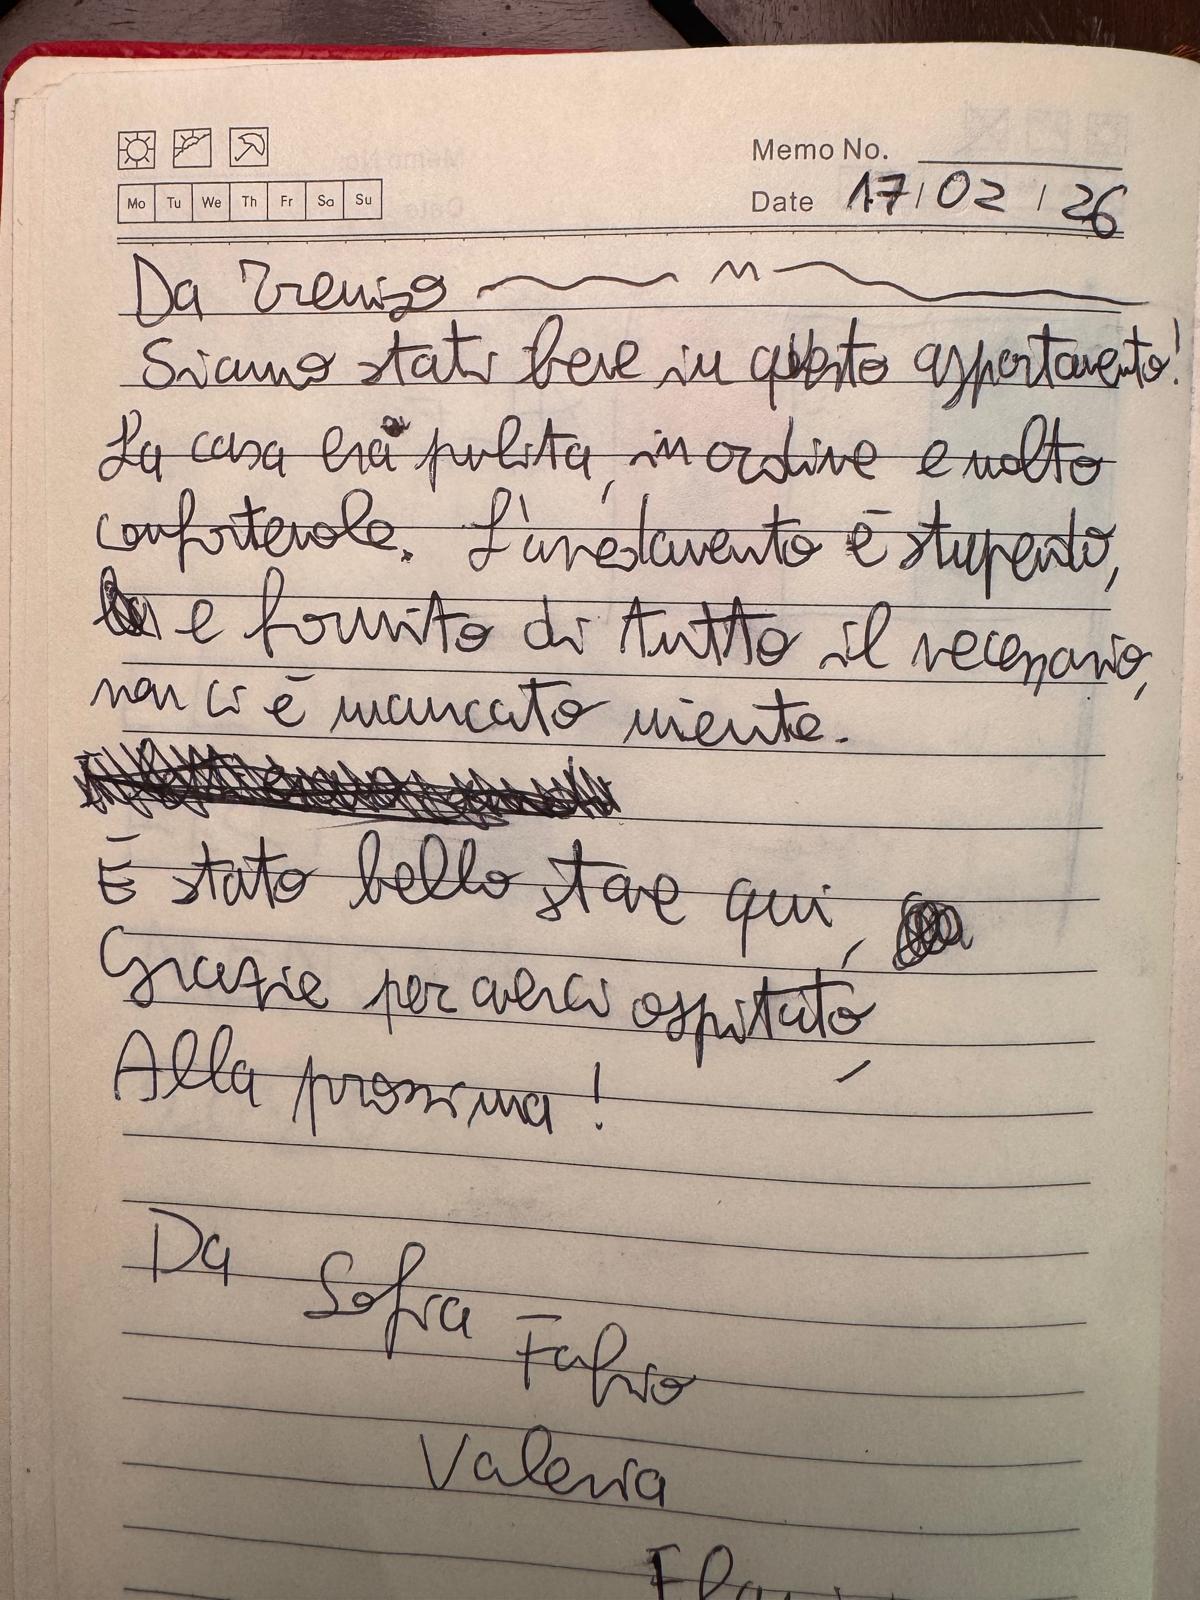 Memo No.
Mo Tu We Th Fr Sa Su
Date 17/02/26
Da Treviso
Siamo stati bene in questo appartamento!
La casa era pulita, in ordine e molto
confortevole. L'arredamento è stupendo,
e fornito di tutto il necessario,
non ci è mancato niente.
È stato bello stare qui,
Grazie per averci ospitato,
Alla prossima!
Da
Sofia
Fabio
Valeria